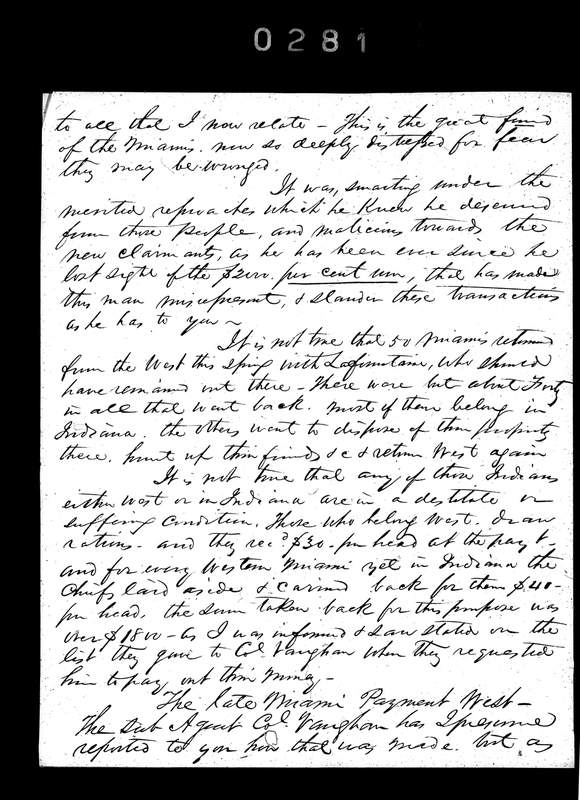 0281
to all that I now relate - This is the great friend
of the Miamis. now so deeply distressed for fear
they may be wronged.
It was, smarting under the
merited reproaches which he knew he deserved
from those people, and malicious towards the
new claimants, as he has been ever since he
lost sight of the $2000. per cent um, that has made
this man misrepresent, & slander these transactions
as he has to you ~
It is not true that 50 Miamis returned
from the West this Spring with Lafountaine, who should
have remained out there - There were but about Forty
in all that went back. most of them belong in
Indiana, the others went to dispose of their property
there. hunt up their funds & c & return West again
It is not true that any of those Indians
either west or in Indiana are in a destitute or
suffering condition. Those who belong West. draw
rations - and they rec'd $30 - per head at the pay t -
and for every Western Miami yet in Indiana the
Chiefs laid aside & carried back for them $40 -
per head. the sum taken back for this purpose was
over $1800 - as I was informed & saw stated on the
list they gave to Col Vaughan when they requested
him to pay out this money -
The late Miami Payment West -
The Sub Agent Col. Vaughan has I presume
reported to you how that was made. but as